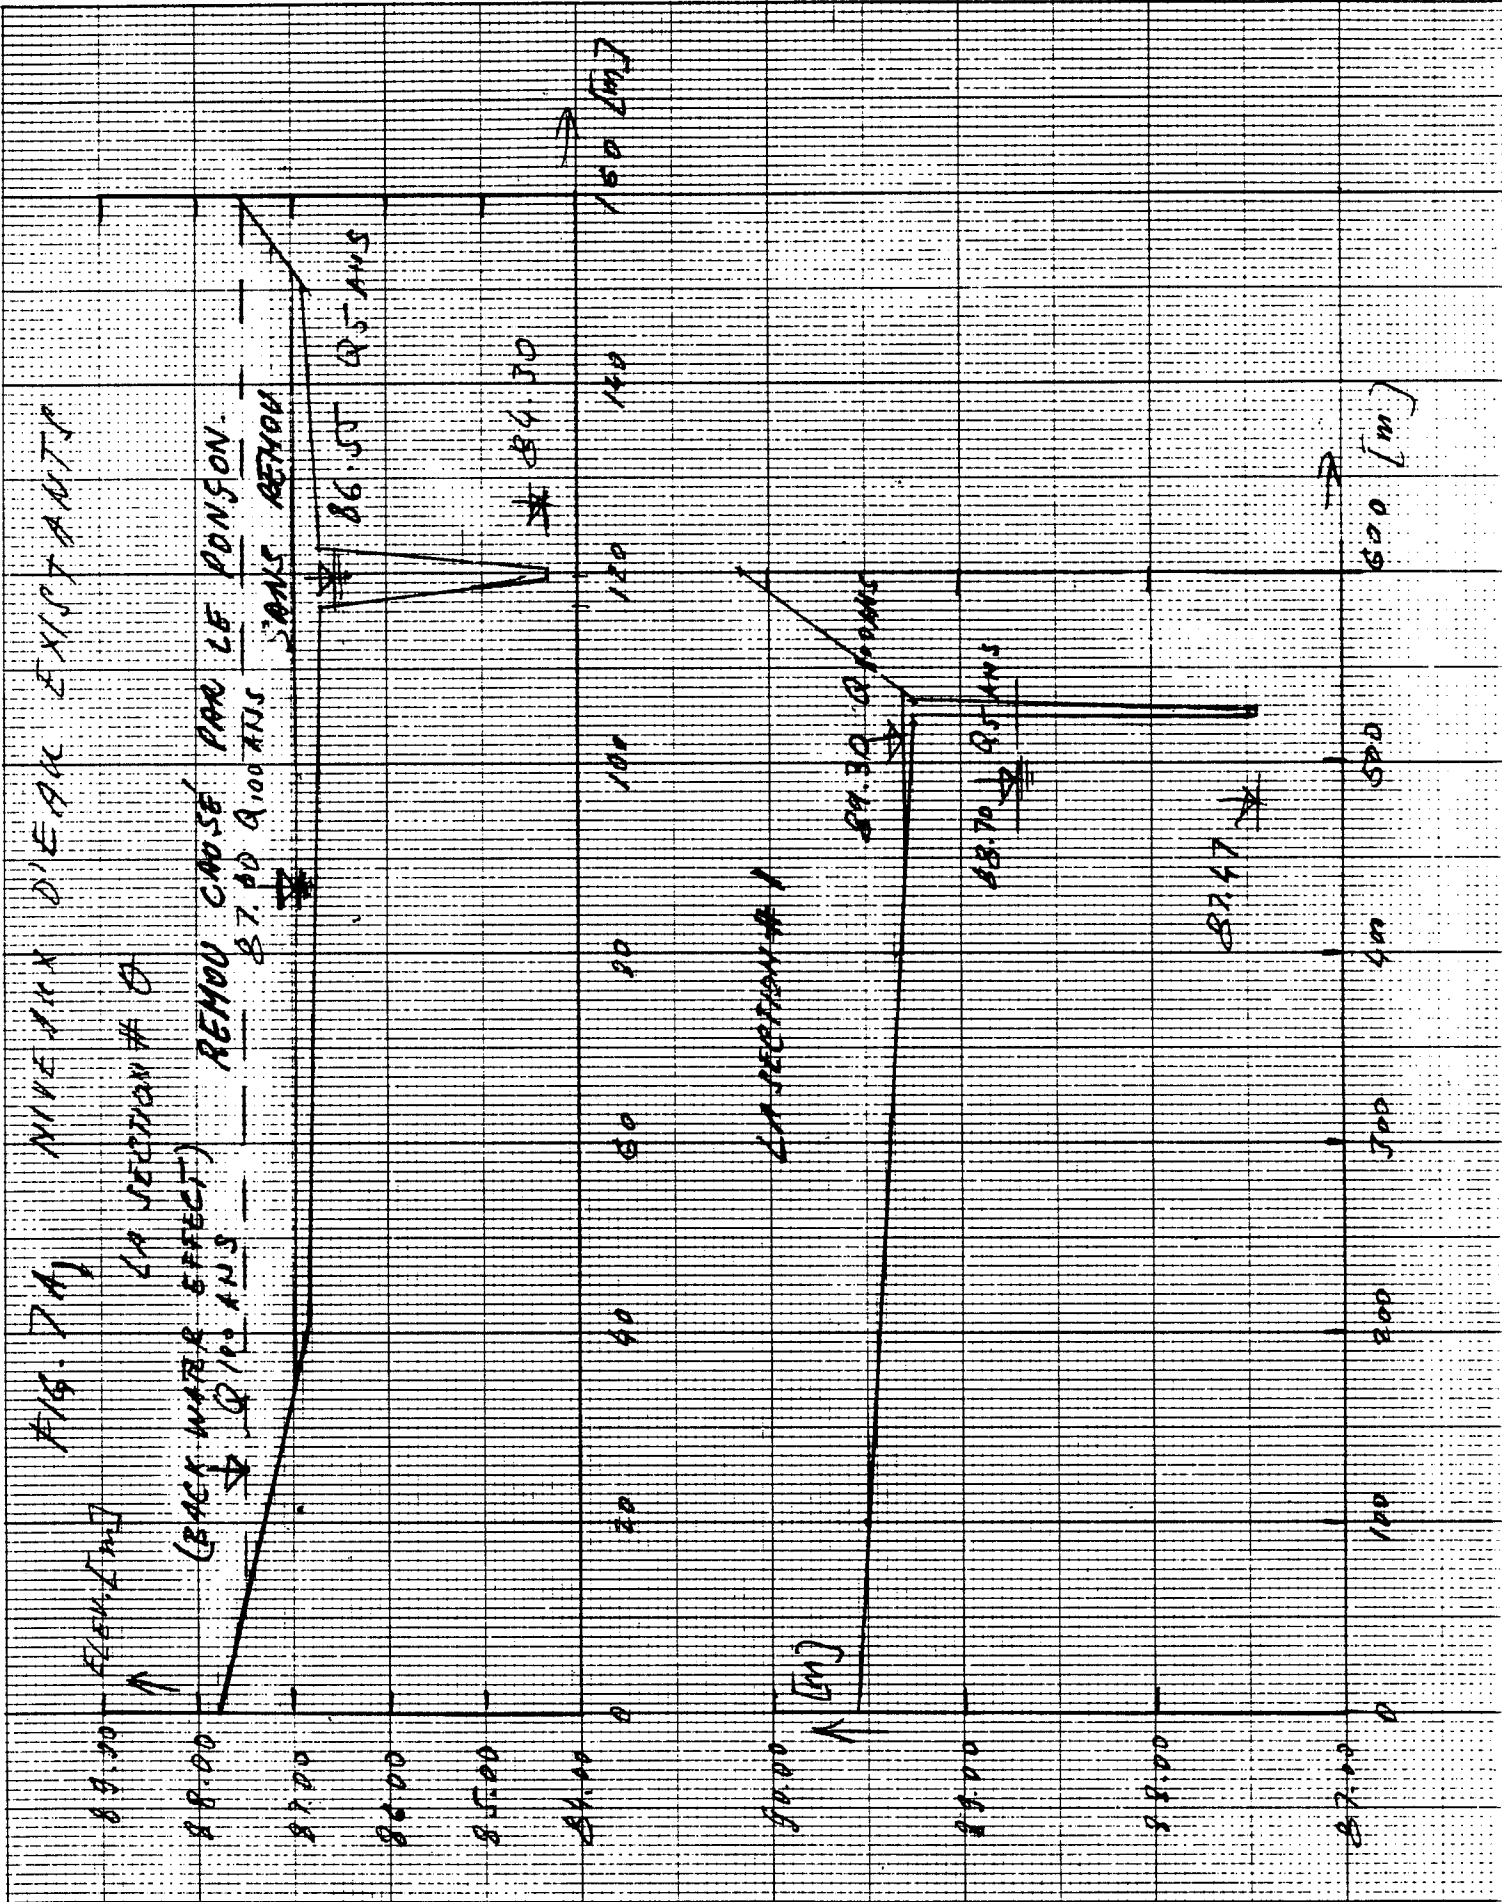 FIG. 7A) NIVEAUX D'EAU EXISTANTS
LA SECTION # 0
ELEV. [m]
(BACK WATER EFFECT) REMOU CAUSÉ PAR LE PONÇON.
Q 100 ANS
87.00 Q 100 ANS
SANS REMOU
86.55 Q5 ANS
84.30
89.00
88.00
87.00
86.00
85.00
84.00
0 20 40 60 80 100 120 140 160 [m]
LA SECTION # 1
[m]
89.30 Q 100 ANS
88.70 Q5 ANS
87.47
90.00
89.00
88.00
87.00
0 100 200 300 400 500 600 [m]